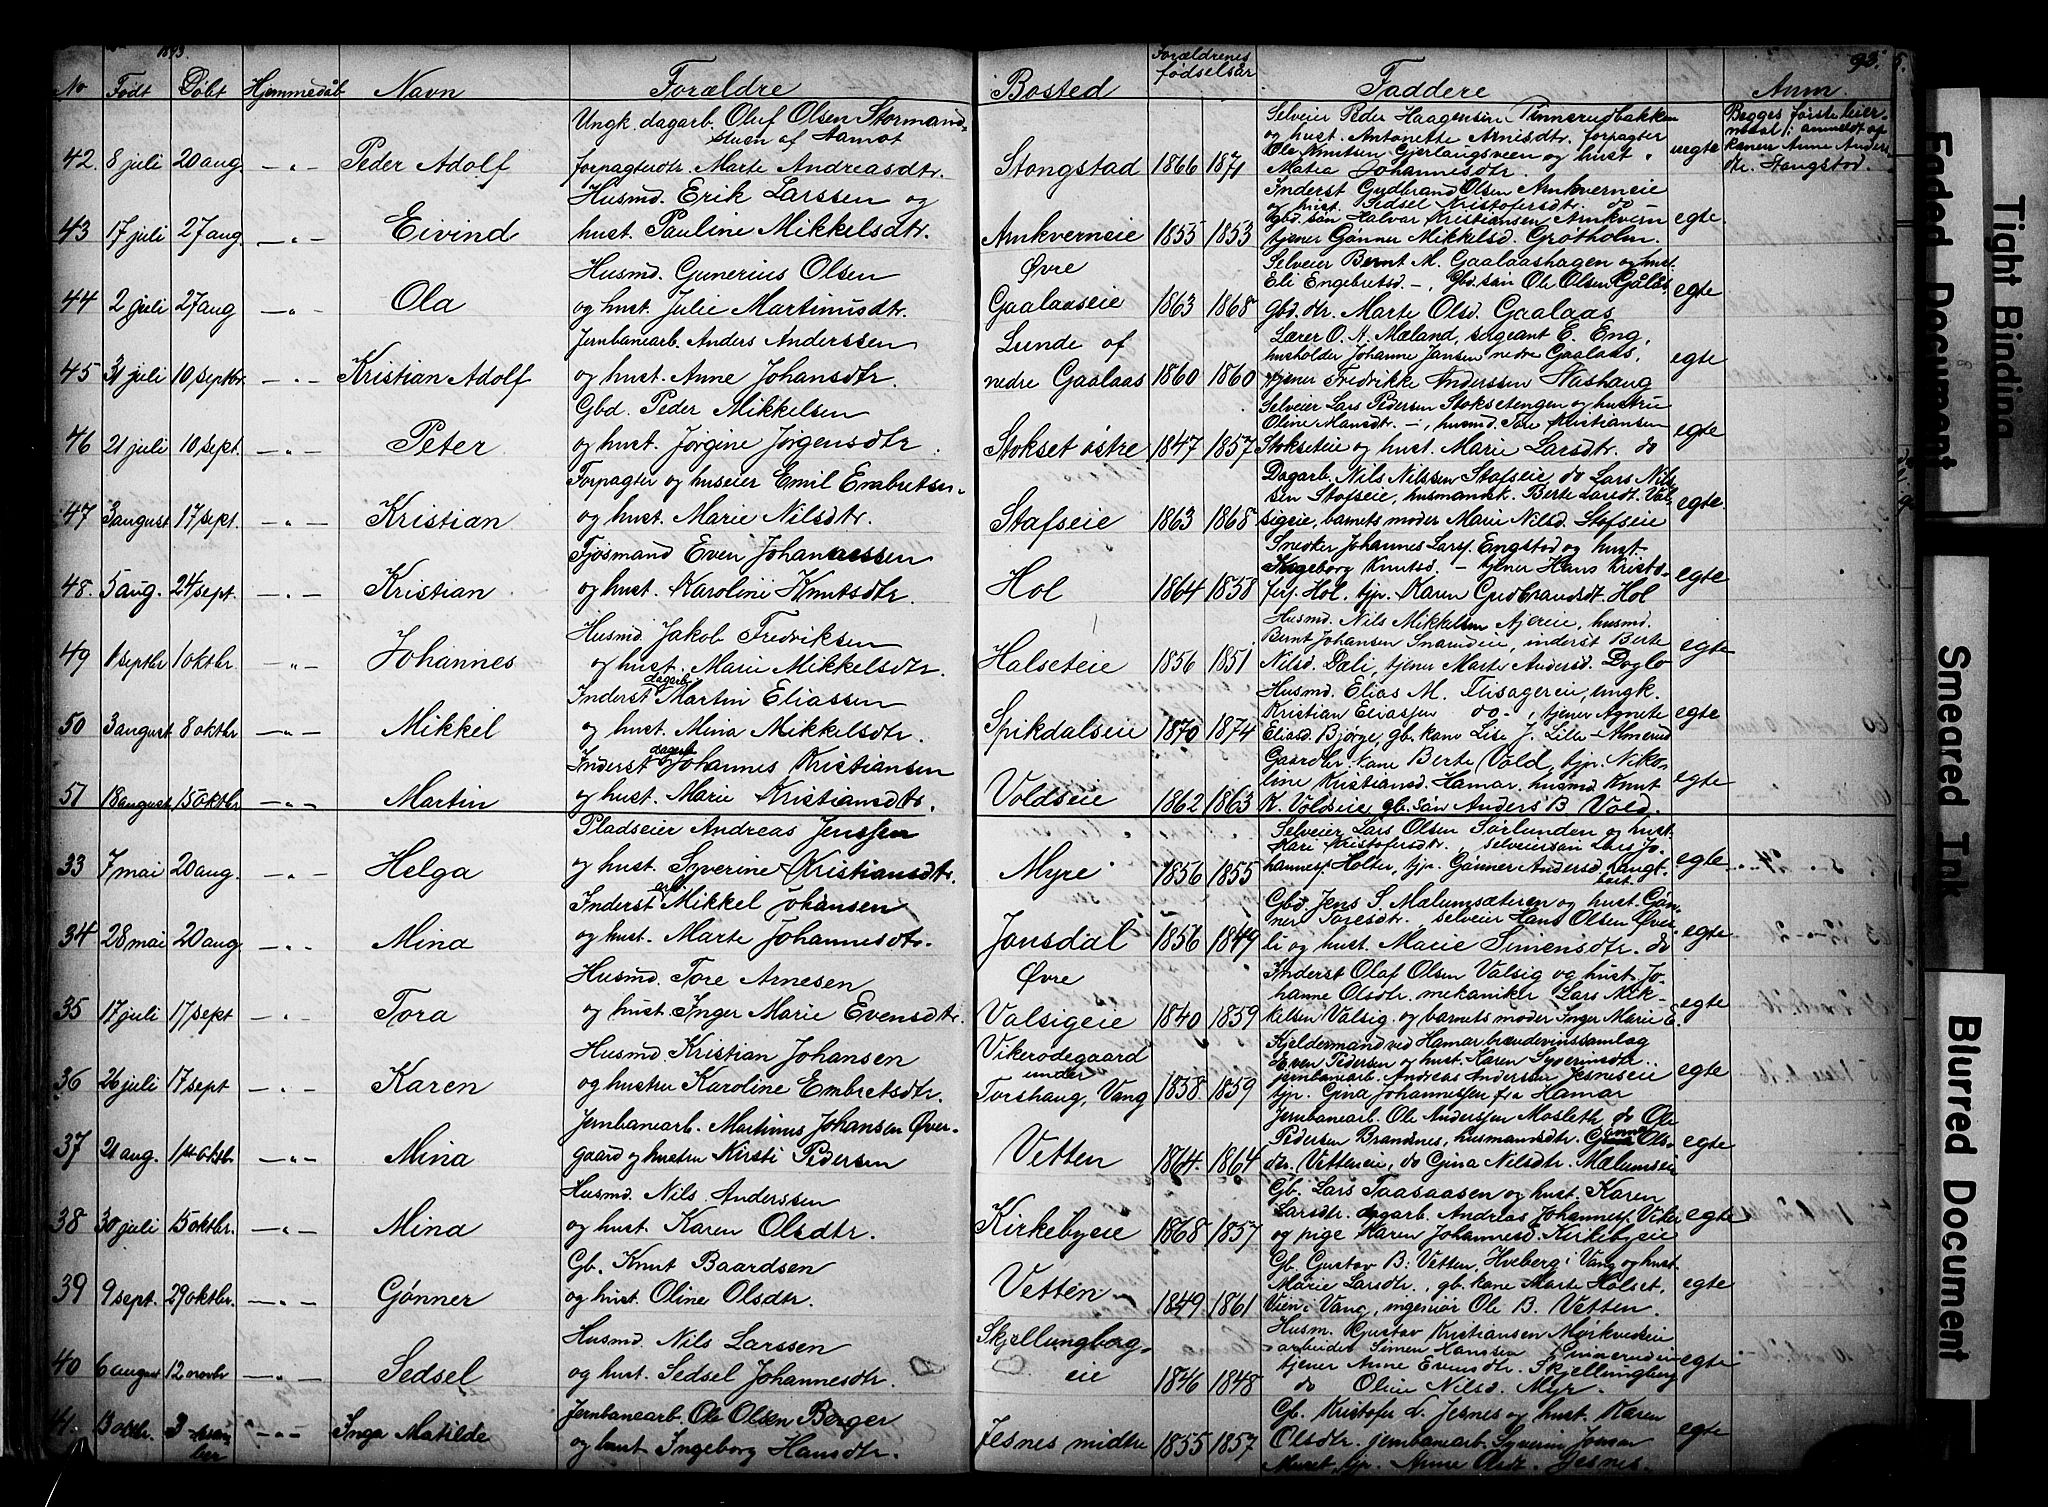 1893.
93.
No Født Døbt Hjemmedåb Navn Forældre Bosted Forældrenes fødselsår Faddere Anm.
Ungk. dagarb. Oluf Olsen Stormand-
stuen af Aamot
42. 8 juli 20 aug. — „ — Peder Adolf forpagterdtr. Marte Andreasdtr. Stongstad 1866 1871 uegte
Selveier Peder Haagensen Finnerudbakken
og hust. Antonette Arnesdtr. forpagter
Ole Knutsen Gjerlaugsveen og hust.
Matea Johannesdtr.
Begges første leier-
maal; anmeldt af
konen Anne Anders
dr. Stangstad.
Husmd. Erik Larssen og
43 17 juli 27 aug. — „ — Eivind hust. Pauline Mikkelsdtr. Arnkverneie 1855 1853 egte
Inderst Gudbrand Olsen Arnkverneie
og hust. Sedsel Kristofersdtr. do —
Gbd. søn Halvar Kristiansen Arnkvern
tjener Gønner Mikkelsd. Grøtholm.
Husmd. Gunerius Olsen
44 2 juli 27 aug — „ — Ola og hust. Julie Martinusdtr. Øvre Gaalaaseie 1863 1868 egte
Selveier Bernt M. Gaalaashagen og hust.
Eli Engebretsd. —, Gbd. søn Ole Olsen Gålås,
Gbd. dtr. Marte Olsd. Gaalaas
Jernbanearb. Anders Anderssen
45 31 juli 10 septbr. — „ — Kristian Adolf og hust. Anne Johansdtr. Lunde af nedre Gaalaas 1860 1860 egte
Lærer O. N. Mæland, sergeant E. Eng,
husholder Johanne Jansen nedre Gaalaas,
tjener Fredrikke Anderssen Nashaug
Gbd. Peder Mikkelsen
46 21 juli 10 sept. — „ — Peter og hust. Jørgine Jørgensdtr. Stokset østre 1847 1857 egte
Selveier Lars Pedersen Stoksetengen og hustru
Oline Hansdtr. —, husmd. Tore Kristiansen
Stokseteie og hust. Marie Larsdtr. do
Forpagter og huseier Emil Embretsen
47 3 august 17 sept. — „ — Kristian og hust. Marie Nilsdtr. Stafseie 1863 1868 egte.
Dagarb. Nils Nilssen Stafseie, do Lars Nils-
sen Stafseie, husmandsk. Berte Larsdt. Val-
sigeie, barnets moder Marie Nilsd. Stafseie
Fjøsmand Even Johannessen
48. 5 aug. 24 sept. — „ — Kristian og hust. Karoline Knutsdtr. Hol 1864 1858 egte
Snedker Johannes Larss. Engstad og hust.
Ingeborg Knutsd. — tjener Hans Kristo-
fers. Hol, tjr. Karen Gudbrandsdt. Hol
Husmd. Jakob Fredriksen
49 1 septbr 1 oktbr. — „ — Johannes og hust. Marie Mikkelsdtr. Halseteie 1856 1851 egte
Husmd. Nils Mikkelsen Njæreie, husmd.
Bernt Johansen Snarudeie, inderst Berte
Nilsd. Dali, tjener Marte Andersd. Doglo
Inderst dagarb. Martin Eliassen
50 3 august 8 oktbr — „ — Mikkel og hust. Mina Mikkelsdtr. Spikdalseie 1870 1874 egte
Husmd. Elias M. Flisagereie, ungk.
Kristian Eliassen do —, tjener Agnete
Eliasd. Bjørge, gb. kane Lise J. Lille-Almerud
Inderst dagarb. Johannes Kristiansen
51 18 august 15 oktbr — „ — Martin og hust. Marie Kristiansdtr. Voldseie 1862 1863 egte
Gaardbr. kone Berte Vold, tjr. Niko-
line Kristiansd. Hamar, husmd. Knut
K. Voldseie, gb. søn Anders B. Vold.
Pladseier Andreas Jenssen
33 7 mai 20 aug. — „ — Helga og hust. Syverine Kristiansdtr. Myre 1856 1855 egte
Selveier Lars Olsen Sørlunden og hust.
Kari Kristofersdtr. , selveiersøn Lars Jo-
hanness. Holter, tjr. Gønner Andersd. Langt-
bort.
Inderst arb. Mikkel Johansen
34 28 mai 20 aug — „ — Mina og hust. Marte Johannesdtr. Jonsdal 1856 1849 egte
Gbd. Jens S. Mælumsæteren og hust. Gøn-
ner Toresdtr. selveier Hans Olsen Øver-
li og hust. Marie Simensdtr. do
Husmd. Tore Arnesen
35 17 juli 17 sept — „ — Tora og hust. Inger Marie Evensdtr. Øvre Valsigeie 1840 1859 egte
Inderst Olaf Olsen Valsig og hust. Jo-
hanne Olsdtr. mekaniker Lars Mik-
kelsen Valsig og barnets moder Inger Marie E.
Husmd Kristian Johansen
36 26 juli 17 sept — „ — Karen og hustru Karoline Embretsdtr. Vikerødegaard under Torshaug, Vang 1858 1859 egte
Kjeldermand ved Hamar brændevinssamlag
Even Pedersen og hust. Karen Syverinsdtr.
jernbanearb. Andreas Anderssen Jesneseie
tjr. Gina Johannessen fra Hamar
Jernbanearb. Martinus Johansen Øver-
37 21 aug. 1st oktbr. — „ — Mina gaard og hustru Kirsti Pedersen Vetten 1864. 1864 egte
Jernbanearb. Ole Anderssen Moslett, do Ole
Pedersen Brandsnes, husmandsdtr. Gønner Ols-
dr. Vetteneie, do Gina Nilsdtr. Mælumseie
Husmd. Nils Anderssen
38 30 juli 15 oktbr. — „ — Mina og hust. Karen Olsdtr. Kirkebyeie 1868 1857 egte
Gb. Lars Taasaasen og hust. Karen
Larsdtr. dagarb. Andreas Johanness. Viker
og pige Karen Johannesd. Kirkebyeie
Gb. Knut Baardsen
39 9 sept. 29 oktbr. — „ — Gønner og hust. Oline Olsdtr. Vetten 1849 1861 egte
Gb. Gustav B. Vetten, Hveberg i Vang og hust.
Marie Larsdtr., gb. kane Marte Holset,
Vien i Vang, ingeniør Ole B. Vetten.
Husmd Nils Larssen
40 6 august 12 novbr — „ — Sedsel og hust. Sedsel Johannesdtr. Skjellungberg-eie 1846 1848 egte
Husm. Gustav Kristiansen Mørkvedeie
arbeider Simen Hanssen
tjener Anne Evensdtr. Skjellungberg
do Oline Nilsd. Myr.
Jernbanearb. Ole Olsen Berger
41. 13 oktbr. 3 desember — „ — Inga Matilde og hust Ingeborg Hansdtr. Jesnes midtre 1855 1857 egte
Gb. Kristofer L. Jesnes og hust. Karen
Olsdtr. jernbanearb. Syverin Jonsen
tjr. Anne Olsdr. Jesnes.
Faded Document
Tight Binding
Smeared Ink
Blurred Document